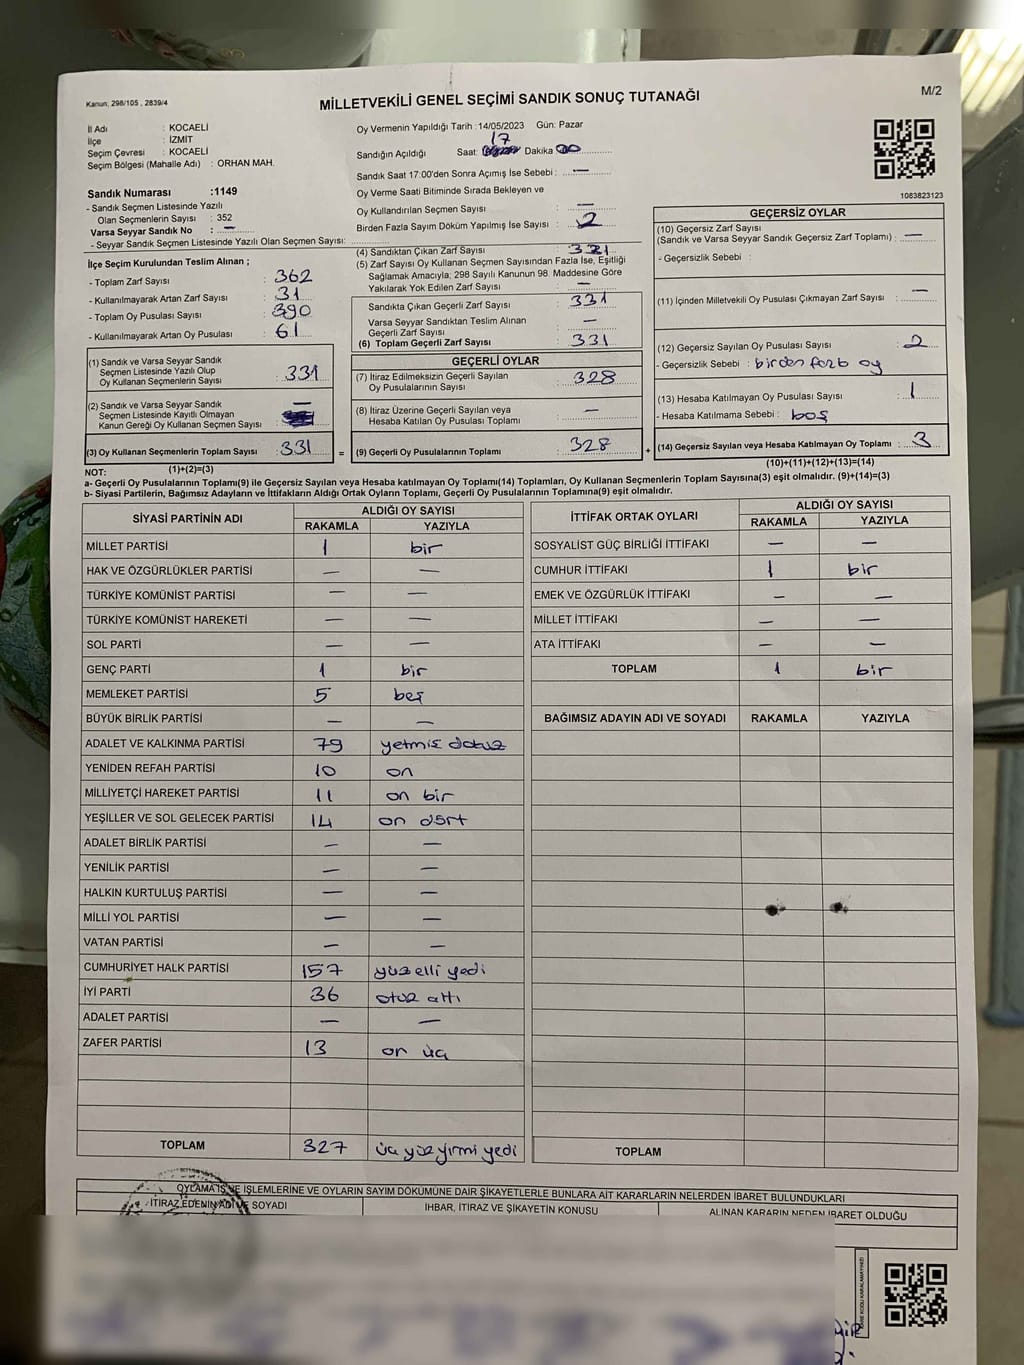 Kanun, 298/105 , 2839/4
MİLLETVEKİLİ GENEL SEÇİMİ SANDIK SONUÇ TUTANAĞI
M/2
İl Adı : KOCAELİ
İlçe : İZMİT
Seçim Çevresi : KOCAELİ
Seçim Bölgesi (Mahalle Adı) : ORHAN MAH.
Sandık Numarası :1149
- Sandık Seçmen Listesinde Yazılı
Olan Seçmenlerin Sayısı : 352
Varsa Seyyar Sandık No : —
- Seyyar Sandık Seçmen Listesinde Yazılı Olan Seçmen Sayısı:
Oy Vermenin Yapıldığı Tarih :14/05/2023 Gün: Pazar
Sandığın Açıldığı Saat: 17 Dakika 00
Sandık Saat 17:00'den Sonra Açımış İse Sebebi : —
Oy Verme Saati Bitiminde Sırada Bekleyen ve
Oy Kullandırılan Seçmen Sayısı : —
Birden Fazla Sayım Döküm Yapılmış İse Sayısı : 2
1083823123
İlçe Seçim Kurulundan Teslim Alınan ;
- Toplam Zarf Sayısı : 362
- Kullanılmayarak Artan Zarf Sayısı : 31
- Toplam Oy Pusulası Sayısı : 390
- Kullanılmayarak Artan Oy Pusulası : 61
(1) Sandık ve Varsa Seyyar Sandık
Seçmen Listesinde Yazılı Olup
Oy Kullanan Seçmenlerin Sayısı : 331
(2) Sandık ve Varsa Seyyar Sandık
Seçmen Listesinde Kayıtlı Olmayan
Kanun Gereği Oy Kullanan Seçmen Sayısı : —
(3) Oy Kullanan Seçmenlerin Toplam Sayısı : 331
(4) Sandıktan Çıkan Zarf Sayısı : 331
(5) Zarf Sayısı Oy Kullanan Seçmen Sayısından Fazla İse, Eşitliği
Sağlamak Amacıyla; 298 Sayılı Kanunun 98. Maddesine Göre
Yakılarak Yok Edilen Zarf Sayısı :
Sandıkta Çıkan Geçerli Zarf Sayısı : 331
Varsa Seyyar Sandıktan Teslim Alınan
Geçerli Zarf Sayısı : —
(6) Toplam Geçerli Zarf Sayısı : 331
GEÇERLİ OYLAR
(7) İtiraz Edilmeksizin Geçerli Sayılan
Oy Pusulalarının Sayısı : 328
(8) İtiraz Üzerine Geçerli Sayılan veya
Hesaba Katılan Oy Pusulası Toplamı : —
= (9) Geçerli Oy Pusulalarının Toplamı : 328
GEÇERSİZ OYLAR
(10) Geçersiz Zarf Sayısı
(Sandık ve Varsa Seyyar Sandık Geçersiz Zarf Toplamı) : —
- Geçersizlik Sebebi :
(11) İçinden Milletvekili Oy Pusulası Çıkmayan Zarf Sayısı : —
(12) Geçersiz Sayılan Oy Pusulası Sayısı : 2
- Geçersizlik Sebebi : birden fazla oy
(13) Hesaba Katılmayan Oy Pusulası Sayısı : 1
- Hesaba Katılmama Sebebi : boş
+ (14) Geçersiz Sayılan veya Hesaba Katılmayan Oy Toplamı : 3
NOT: (1)+(2)=(3)
(10)+(11)+(12)+(13)=(14)
a- Geçerli Oy Pusulalarının Toplamı(9) ile Geçersiz Sayılan veya Hesaba katılmayan Oy Toplamı(14) Toplamları, Oy Kullanan Seçmenlerin Toplam Sayısına(3) eşit olmalıdır. (9)+(14)=(3)
b- Siyasi Partilerin, Bağımsız Adayların ve İttifakların Aldığı Ortak Oyların Toplamı, Geçerli Oy Pusulalarının Toplamına(9) eşit olmalıdır.
SİYASİ PARTİNİN ADI ALDIĞI OY SAYISI
RAKAMLA YAZIYLA
MİLLET PARTİSİ 1 bir
HAK VE ÖZGÜRLÜKLER PARTİSİ — —
TÜRKİYE KOMÜNİST PARTİSİ — —
TÜRKİYE KOMÜNİST HAREKETİ — —
SOL PARTİ — —
GENÇ PARTİ 1 bir
MEMLEKET PARTİSİ 5 beş
BÜYÜK BİRLİK PARTİSİ — —
ADALET VE KALKINMA PARTİSİ 79 yetmiş dokuz
YENİDEN REFAH PARTİSİ 10 on
MİLLİYETÇİ HAREKET PARTİSİ 11 on bir
YEŞİLLER VE SOL GELECEK PARTİSİ 14 on dört
ADALET BİRLİK PARTİSİ — —
YENİLİK PARTİSİ — —
HALKIN KURTULUŞ PARTİSİ — —
MİLLİ YOL PARTİSİ — —
VATAN PARTİSİ — —
CUMHURİYET HALK PARTİSİ 157 yüz elli yedi
İYİ PARTİ 36 otuz altı
ADALET PARTİSİ — —
ZAFER PARTİSİ 13 on üç
TOPLAM 327 üç yüz yirmi yedi
İTTİFAK ORTAK OYLARI ALDIĞI OY SAYISI
RAKAMLA YAZIYLA
SOSYALİST GÜÇ BİRLİĞİ İTTİFAKI — —
CUMHUR İTTİFAKI 1 bir
EMEK VE ÖZGÜRLÜK İTTİFAKI — —
MİLLET İTTİFAKI — —
ATA İTTİFAKI — —
TOPLAM 1 bir
BAĞIMSIZ ADAYIN ADI VE SOYADI RAKAMLA YAZIYLA
TOPLAM
OYLAMA İŞ VE İŞLEMLERİNE VE OYLARIN SAYIM DÖKÜMÜNE DAİR ŞİKAYETLERLE BUNLARA AİT KARARLARIN NELERDEN İBARET BULUNDUKLARI
İTİRAZ EDENİN ADI VE SOYADI İHBAR, İTİRAZ VE ŞİKAYETİN KONUSU ALINAN KARARIN NEDEN İBARET OLDUĞU
KARE KODU KARALAMAYINIZ!